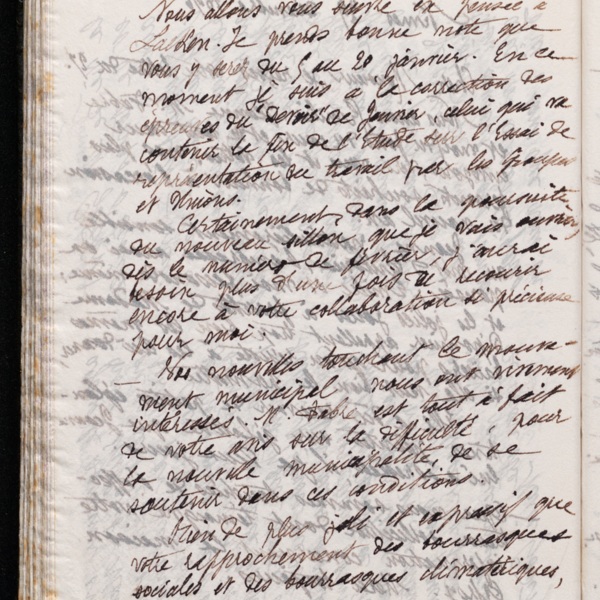 Nous allons vous suivre en pensée à
Laeken. Je prends bonne note que
vous y serez du 5 au 20 janvier. En ce
moment je suis à la correction des
épreuves du "Devoir" de Janvier, celui qui va
contenir la fin de l'Etude sur l'Essai de
représentation du travail par les Groupes
et Unions.
Certainement, dans la poursuite
du nouveau sillon que je vais ouvrir
dès le numéro de février, j'aurai
besoin plus d'une fois de recourir
encore à votre collaboration si précieuse
pour moi.
Vos nouvelles touchant le mouve-
ment municipal nous ont vivement
intéressés. M. Fabre est tout à fait
de votre avis sur la difficulté, pour
la nouvelle municipalité de se
soutenir dans ces conditions.
Rien de plus joli et expressif que
votre rapprochement des bourrasques
sociales et des bourrasques climatériques,